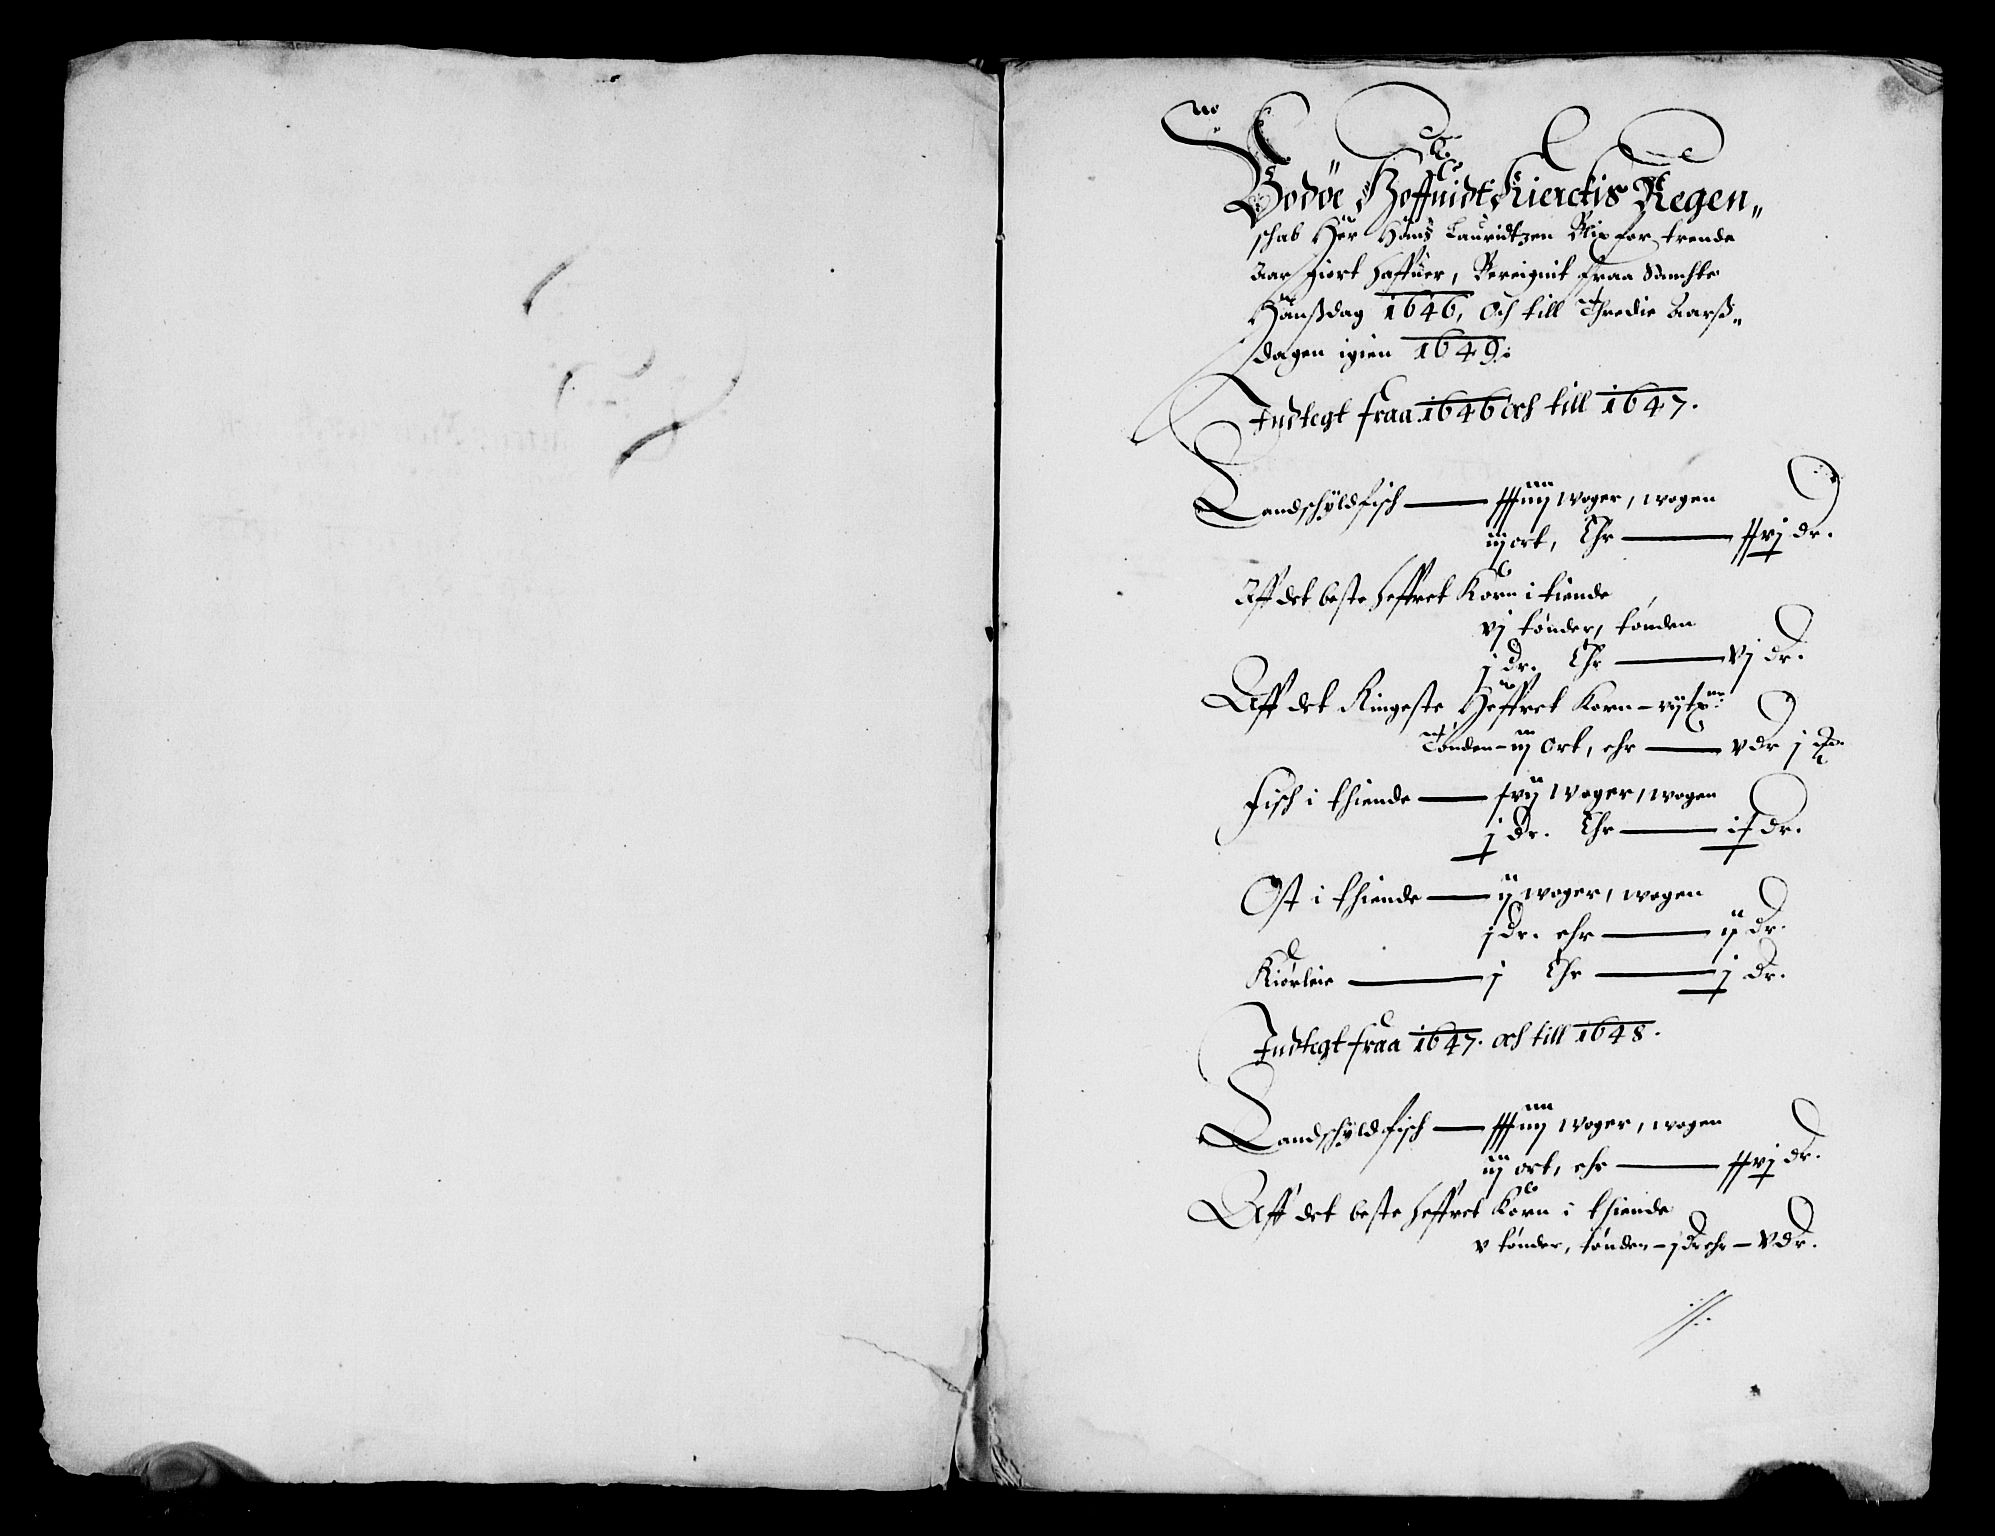 Bodøe Hoffuidt Kierckis Regen„
schab Her Hans Lauridtzen Blix for trende
Aar giort haffuer, Bereignit fraa Sanchte
Hanßdag 1646, Och till Thredie Aarß„
dagen igien 1649:
Indtegt fraa 1646 och till 1647.
Landschyldfisch — xxxiiij woger, wogen
iij ort, Ehr — xxvj dr.
Aff det beste heffret Korn i tiende
vj tønder, tønden
j dr. Ehr — vj dr.
Aff det Ringeste Heffret Korn – vij
Tønden – iij Ort, ehr — v dr j
Fisch i thiende — xvij woger, wogen
j dr. Ehr — dr.
Ost i thiende — ij woger, wogen
j dr. ehr — ij dr.
Kiørleie — j Ehr — j dr.
Indtegt fraa 1647. och till 1648.
Landschyldfisch — xxxiiij woger, wogen
iij ort, ehr — xxvj dr.
Aff det beste heffret Korn i thiende
v tønder, tønden – j dr ehr – v dr.